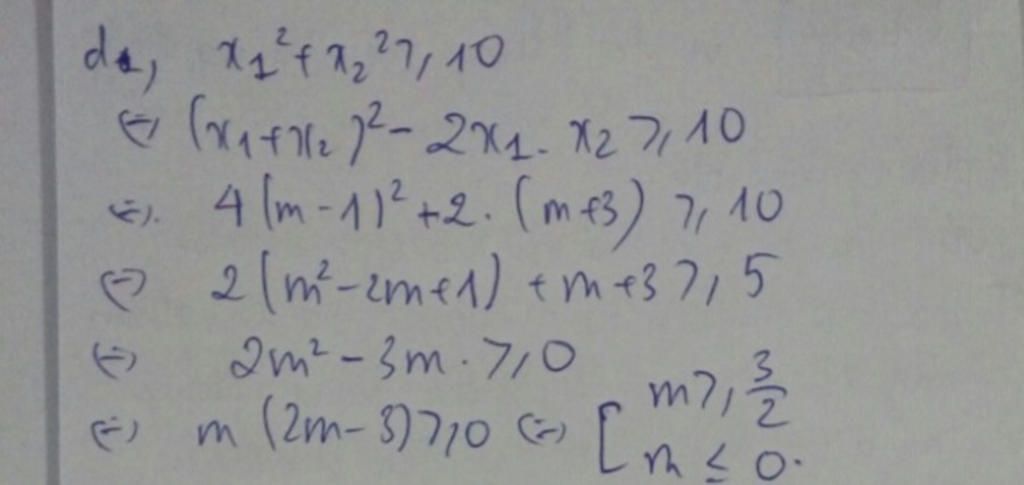 d1, x₁² + x₂² ≥ 10
⇔ (x₁ + x₂)² - 2x₁. x₂ ≥ 10
⇔. 4(m - 1)² + 2. (m+3) ≥ 10
⇔ 2(m² - 2m + 1) + m + 3 ≥ 5
⇔ 2m² - 3m. ≥ 0
⇔ m (2m - 3) ≥ 0 ⇔ [ m ≥ 3/2
m ≤ 0.